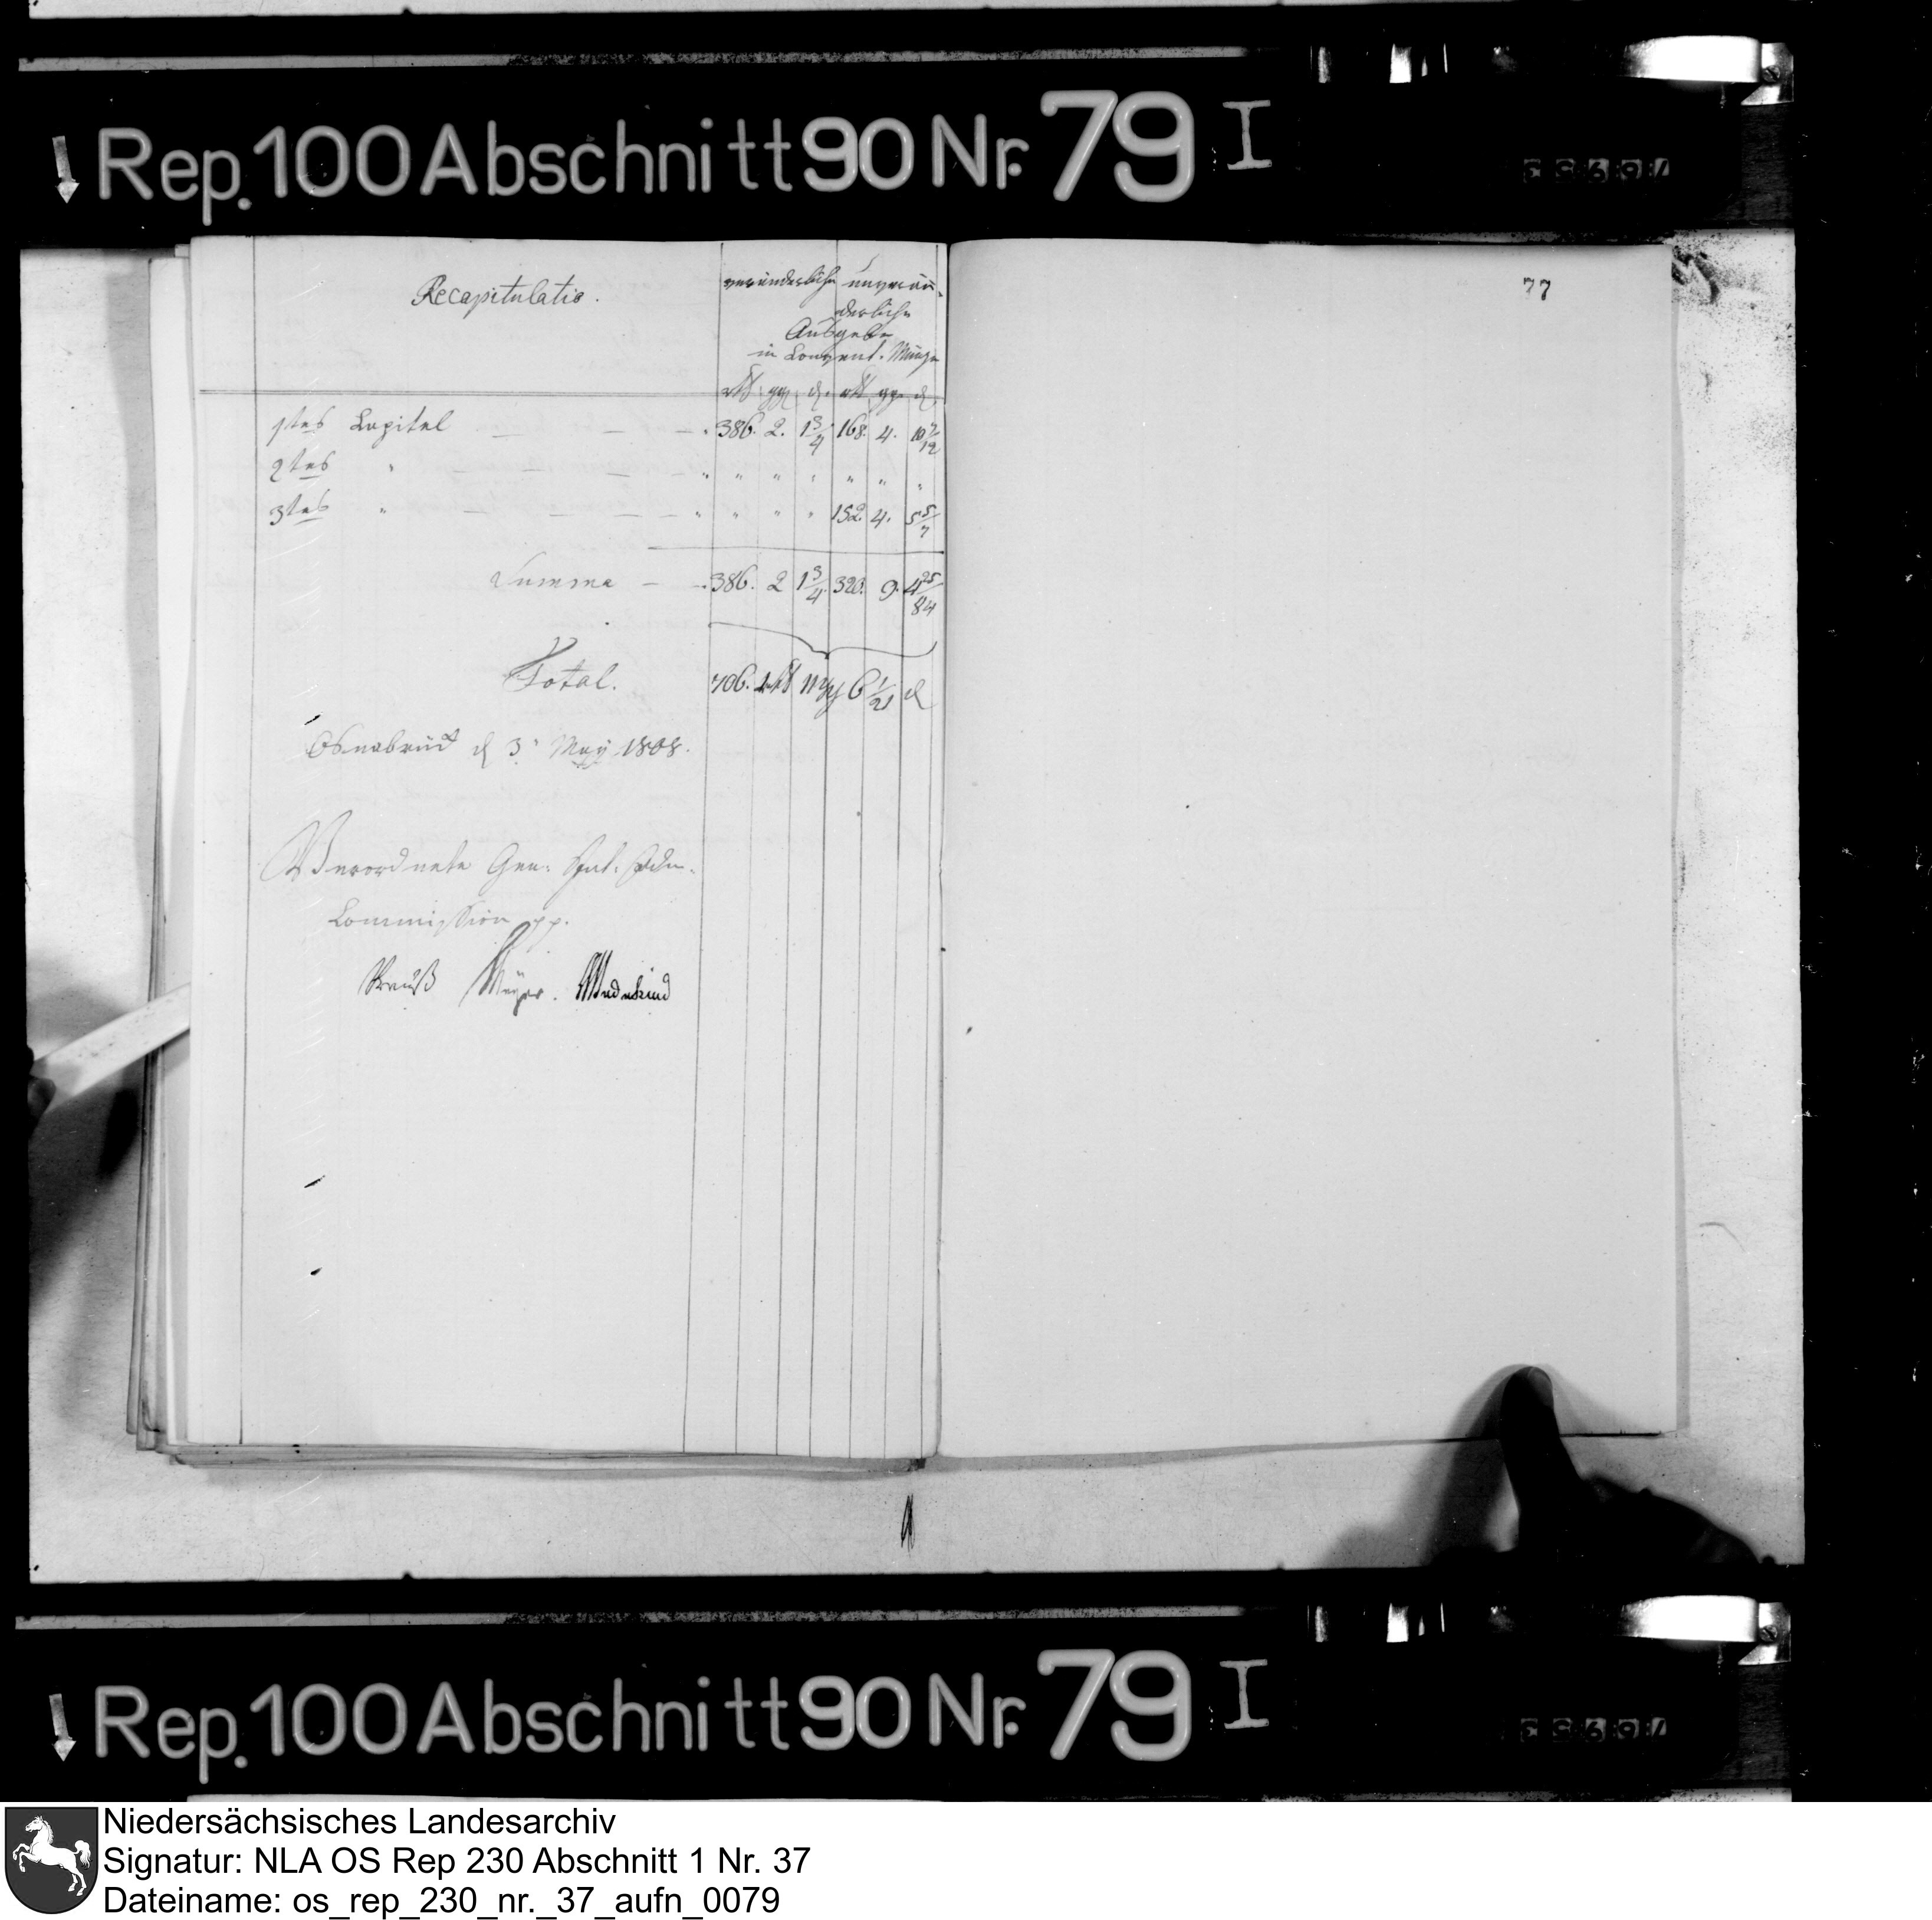 Rep. 100 Abschnitt 90 Nr. 79 I
77
Recapitulatio.
veränderliche unverän-
derliche
Ausgabe
in Convent. Münze
rtl ggl d. rtl ggl d
1tes Capitel — — — 386. 2. 1 3/4 168. 4. 10 7/12
2tes " — — — " " " " " " "
3tes " — — — " " " " 152. 4. 5 5/7
Summa — 386. 2 1 3/4. 320. 9. 4 25/84
Total. 706. rtl 11 ggl 6 1/21 d
Osnabrück d 3. May 1808.
Verordnete Gen:
Commission pp.
Preuß Meyer. Wedekind
Rep. 100 Abschnitt 90 Nr. 79 I
Niedersächsisches Landesarchiv
Signatur: NLA OS Rep 230 Abschnitt 1 Nr. 37
Dateiname: os_rep_230_nr._37_aufn_0079